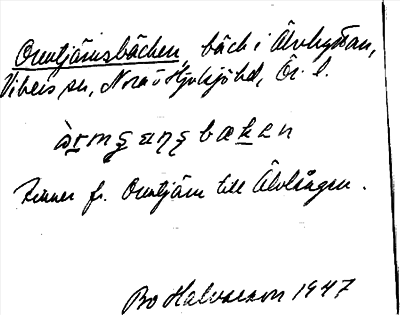 Ormtjärnsbäcken, bäck i Älvhyttan,
Vikers sn, Nora o Hjulsjö bd, Ör. l.
Rinner fr. Ormtjärn till Älvlången.
Bo Halvarson 1947